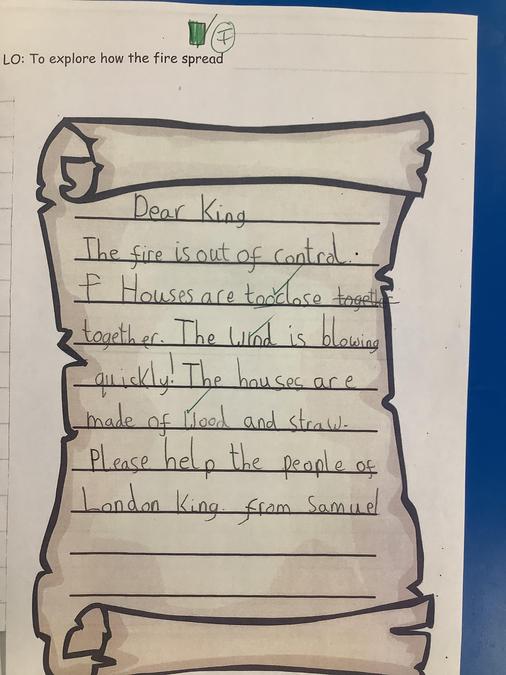 I
LO: To explore how the fire spread
Dear King
The fire is out of control.
f Houses are too close togeth
together. The wind is blowing
quickly! The houses are
made of Wood and straw.
Please help the people of
London King. from Samuel